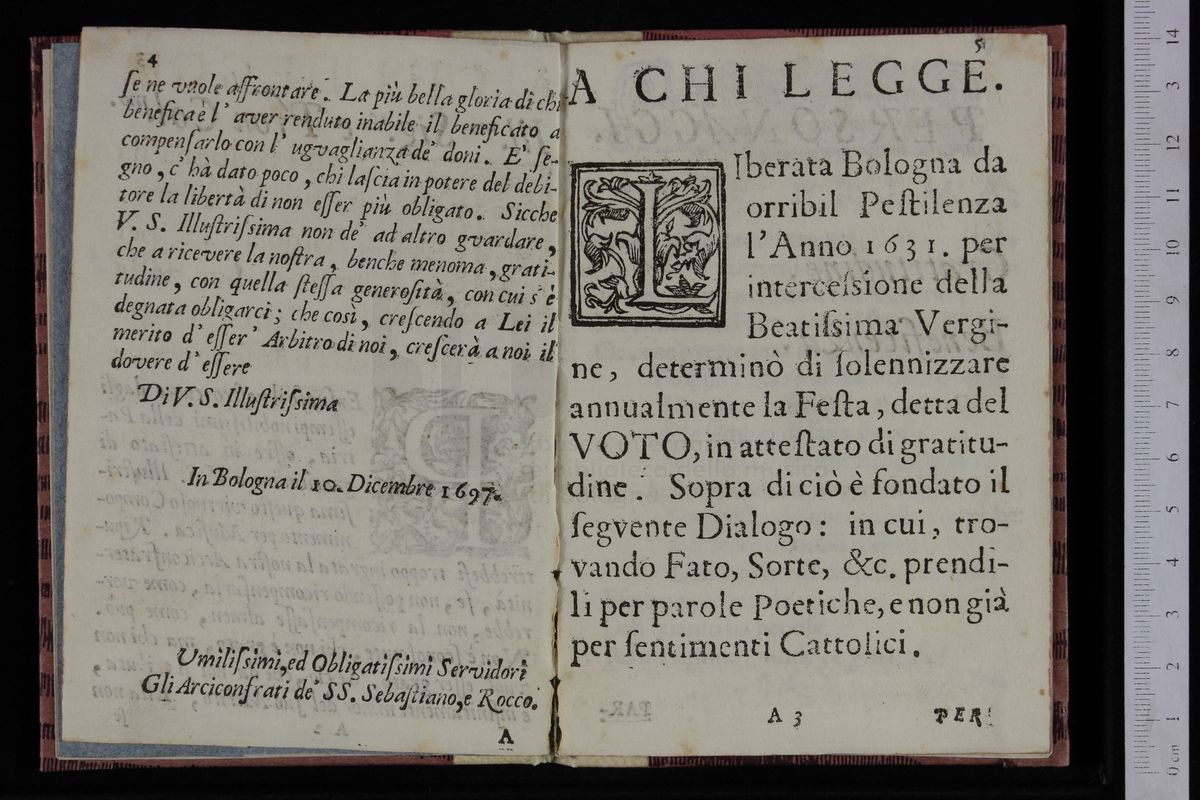 4
ſe ne vuole affrontare. La più bella gloria di chi
benefica è l' aver renduto inabile il beneficato a
compenſarlo con l' ugvaglianza de' doni. E' ſe-
gno, c' hà dato poco, chi laſcia in potere del debi-
tore la libertà di non eſſer più obligato. Sicche
V. S. Illuſtriſsima non de' ad altro gvardare,
che a ricevere la noſtra, benche menoma, grati-
tudine, con quella ſteſſa generoſità, con cui s' è
degnata obligarci; che così, creſcendo a Lei il
merito d' eſſer' Arbitro di noi, creſcerà a noi il
dovere d' eſſere
Di V. S. Illuſtriſsima
In Bologna il 10. Dicembre 1697.
Umiliſsimi, ed Obligatiſsimi Servidori
Gli Arciconfrati de' SS. Sebaſtiano, e Rocco.
A
5
A CHI LEGGE.
LIberata Bologna da
orribil Peſtilenza
l'Anno 1631. per
interceſsione della
Beatiſsima Vergi-
ne, determinò di ſolennizzare
annualmente la Feſta, detta del
VOTO, in atteſtato di gratitu-
dine. Sopra di ciò è fondato il
ſegvente Dialogo: in cui, tro-
vando Fato, Sorte, &c. prendi-
li per parole Poetiche, e non già
per ſentimenti Cattolici.
A 3
PER-
0 cm 1 2 3 4 5 6 7 8 9 10 11 12 13 14